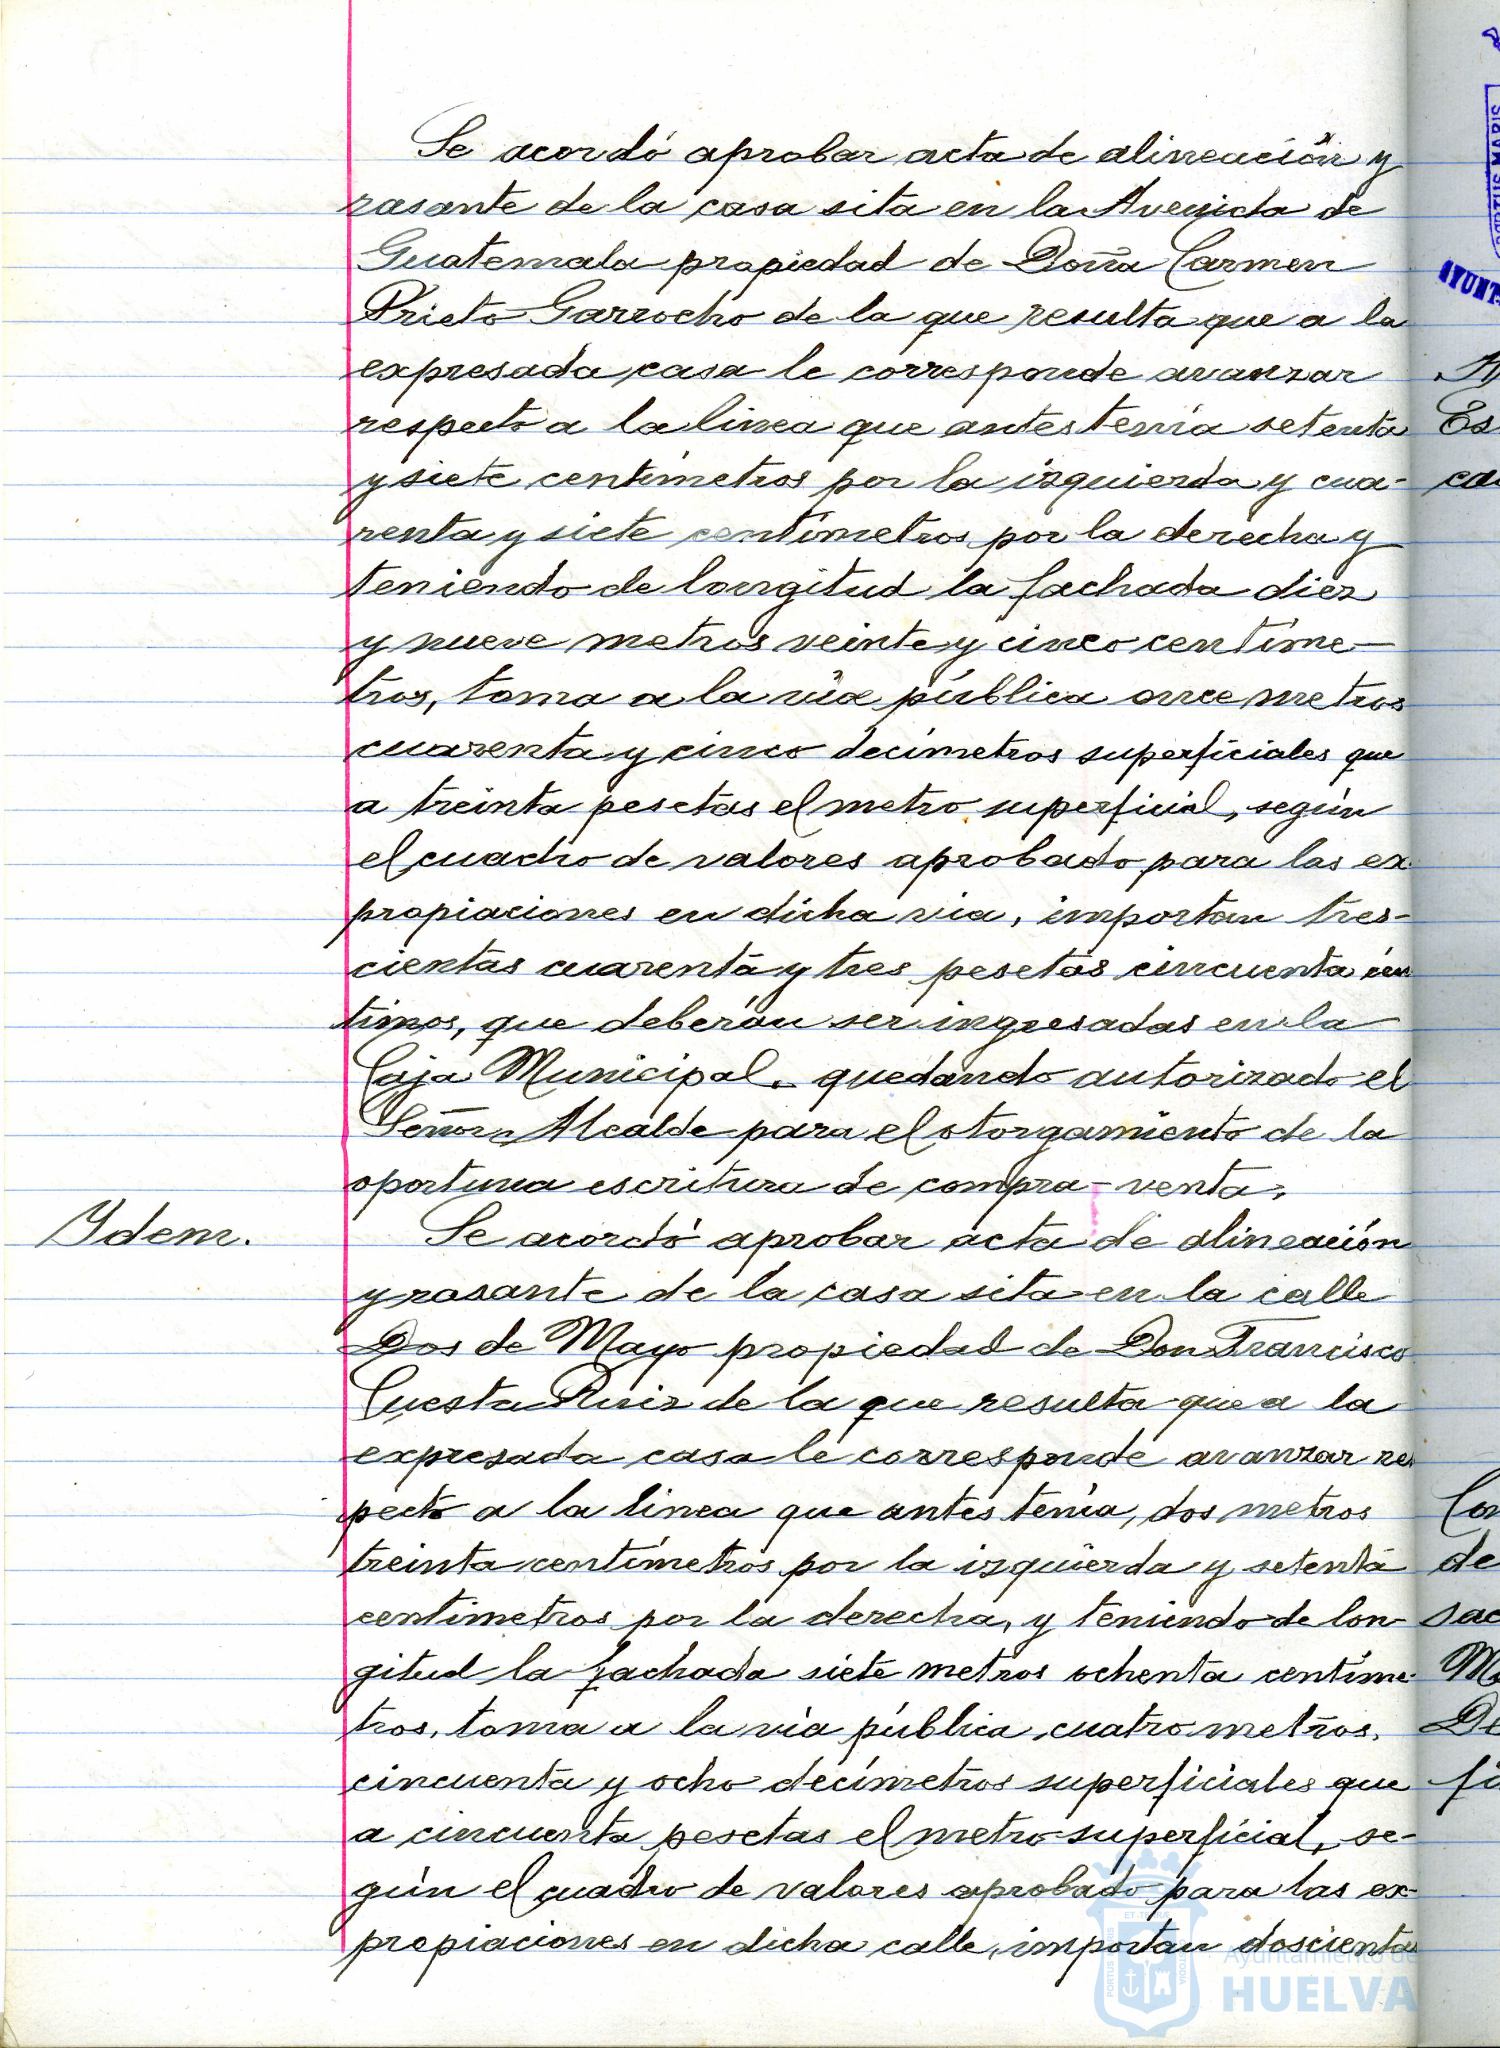 Se acordó aprobar acta de alineación y
rasante de la casa sita en la Avenida de
Guatemala propiedad de Doña Carmen
Prieto Garrocho de la que resulta que a la
expresada casa le corresponde avanzar
respecto a la linea que antes tenía setenta
y siete centímetros por la izquierda y cua-
renta y siete centímetros por la derecha y
teniendo de longitud la fachada diez
y nueve metros veinte y cinco centíme-
tros, toma a la vía pública once metros
cuarenta y cinco decímetros superficiales que
a treinta pesetas el metro superficial, según
el cuadro de valores aprobado para las ex-
propiaciones en dicha via, importan tres-
cientas cuarenta y tres pesetas cincuenta cén
timos, que deberán ser ingresadas en la
Caja Municipal. quedando autorizado el
Señor Alcalde para el otorgamiento de la
oportuna escritura de compra-venta.
Ydem.
Se acordó aprobar acta de alineación
y rasante de la casa sita en la calle
Dos de Mayo propiedad de Don Francisco
Cuesta Ruiz de la que resulta que a la
expresada casa le corresponde avanzar res
pecto a la linea que antes tenía, dos metros
treinta centímetros por la izquierda y setenta
centimetros por la derecha, y teniendo de lon-
gitud la fachada siete metros ochenta centíme-
tros, toma a la vía pública cuatro metros,
cincuenta y ocho decímetros superficiales que
a cincuenta pesetas el metro superficial, se-
gún el cuadro de valores aprobado para las ex-
propiaciones en dicha calle, importan doscientas
Ayuntamiento de
HUELVA